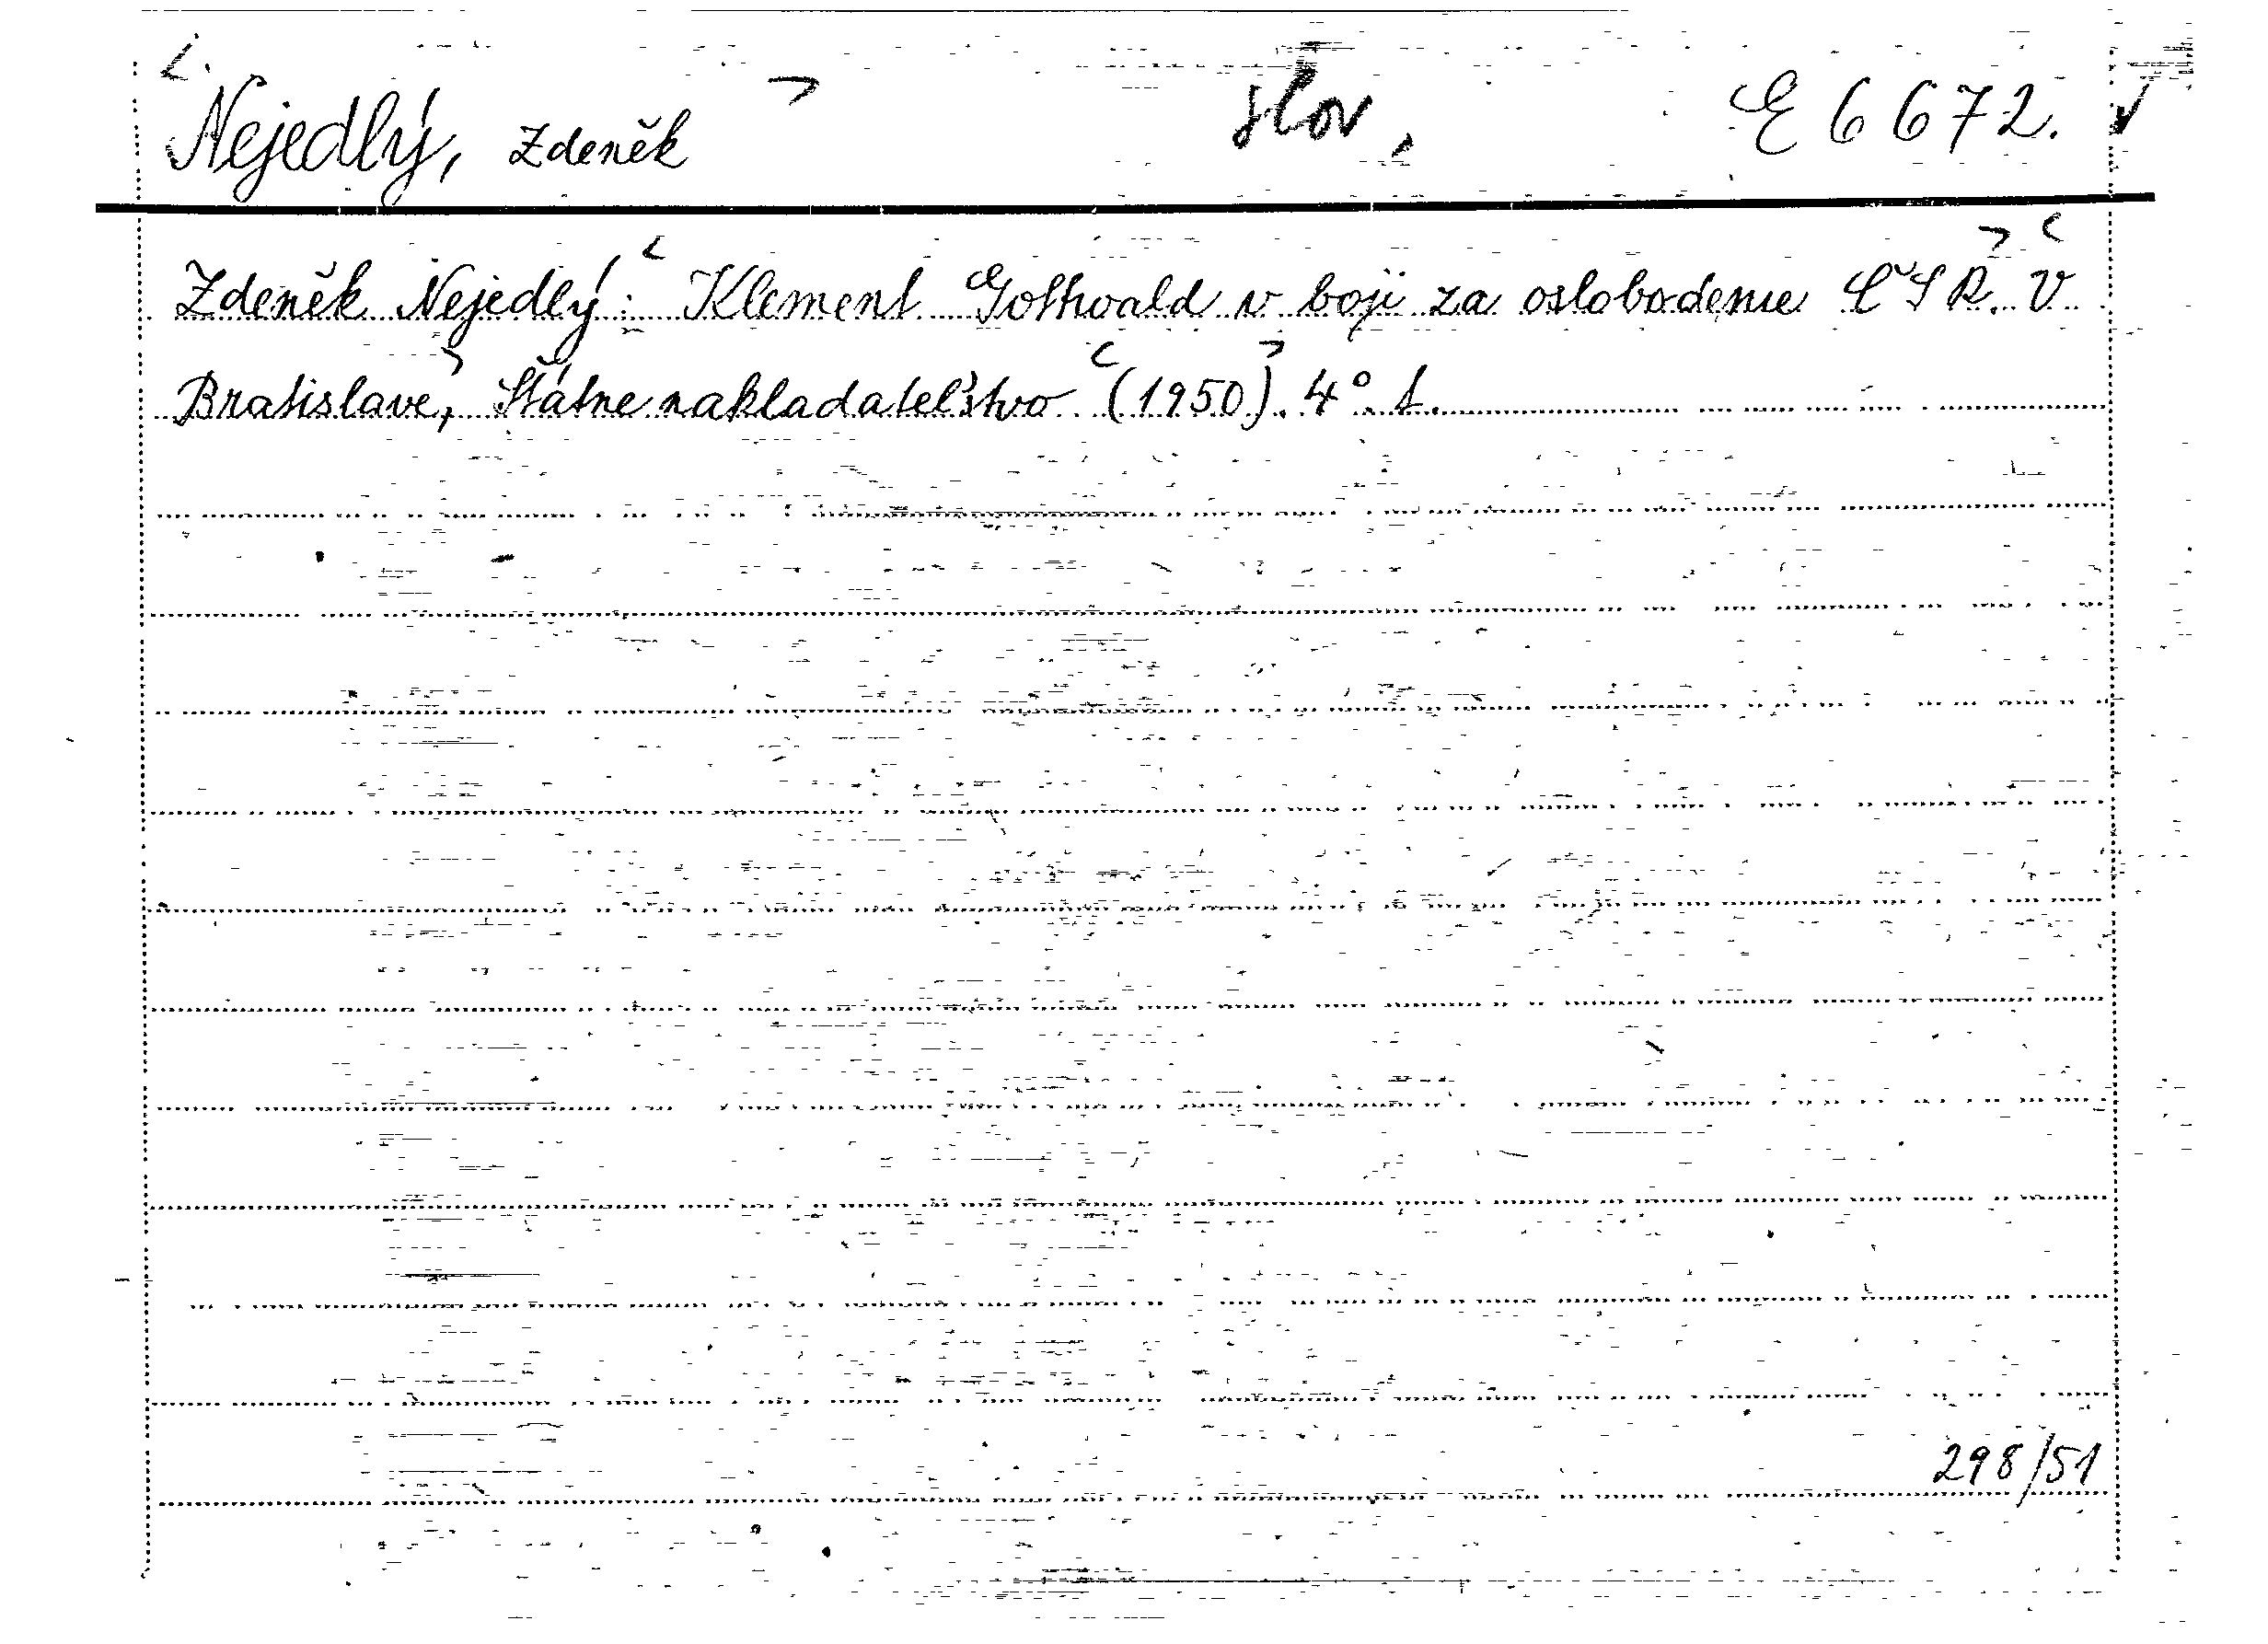 Nejedlý, Zdeněk slov. E 6672.
Zdeněk Nejedlý: Klement Gottwald v boji za oslobodenie ČSR. V
Bratislave, Štátne nakladateľstvo (1950). 4°.
298/51